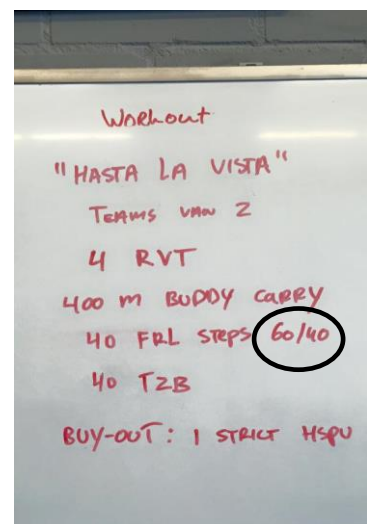 Workout
"HASTA LA VISTA"
TEAMS VAN 2
4 RVT
400 m BUDDY CARRY
40 FRL STEPS 60/40
40 T2B
BUY-OUT: 1 STRICT HSPU